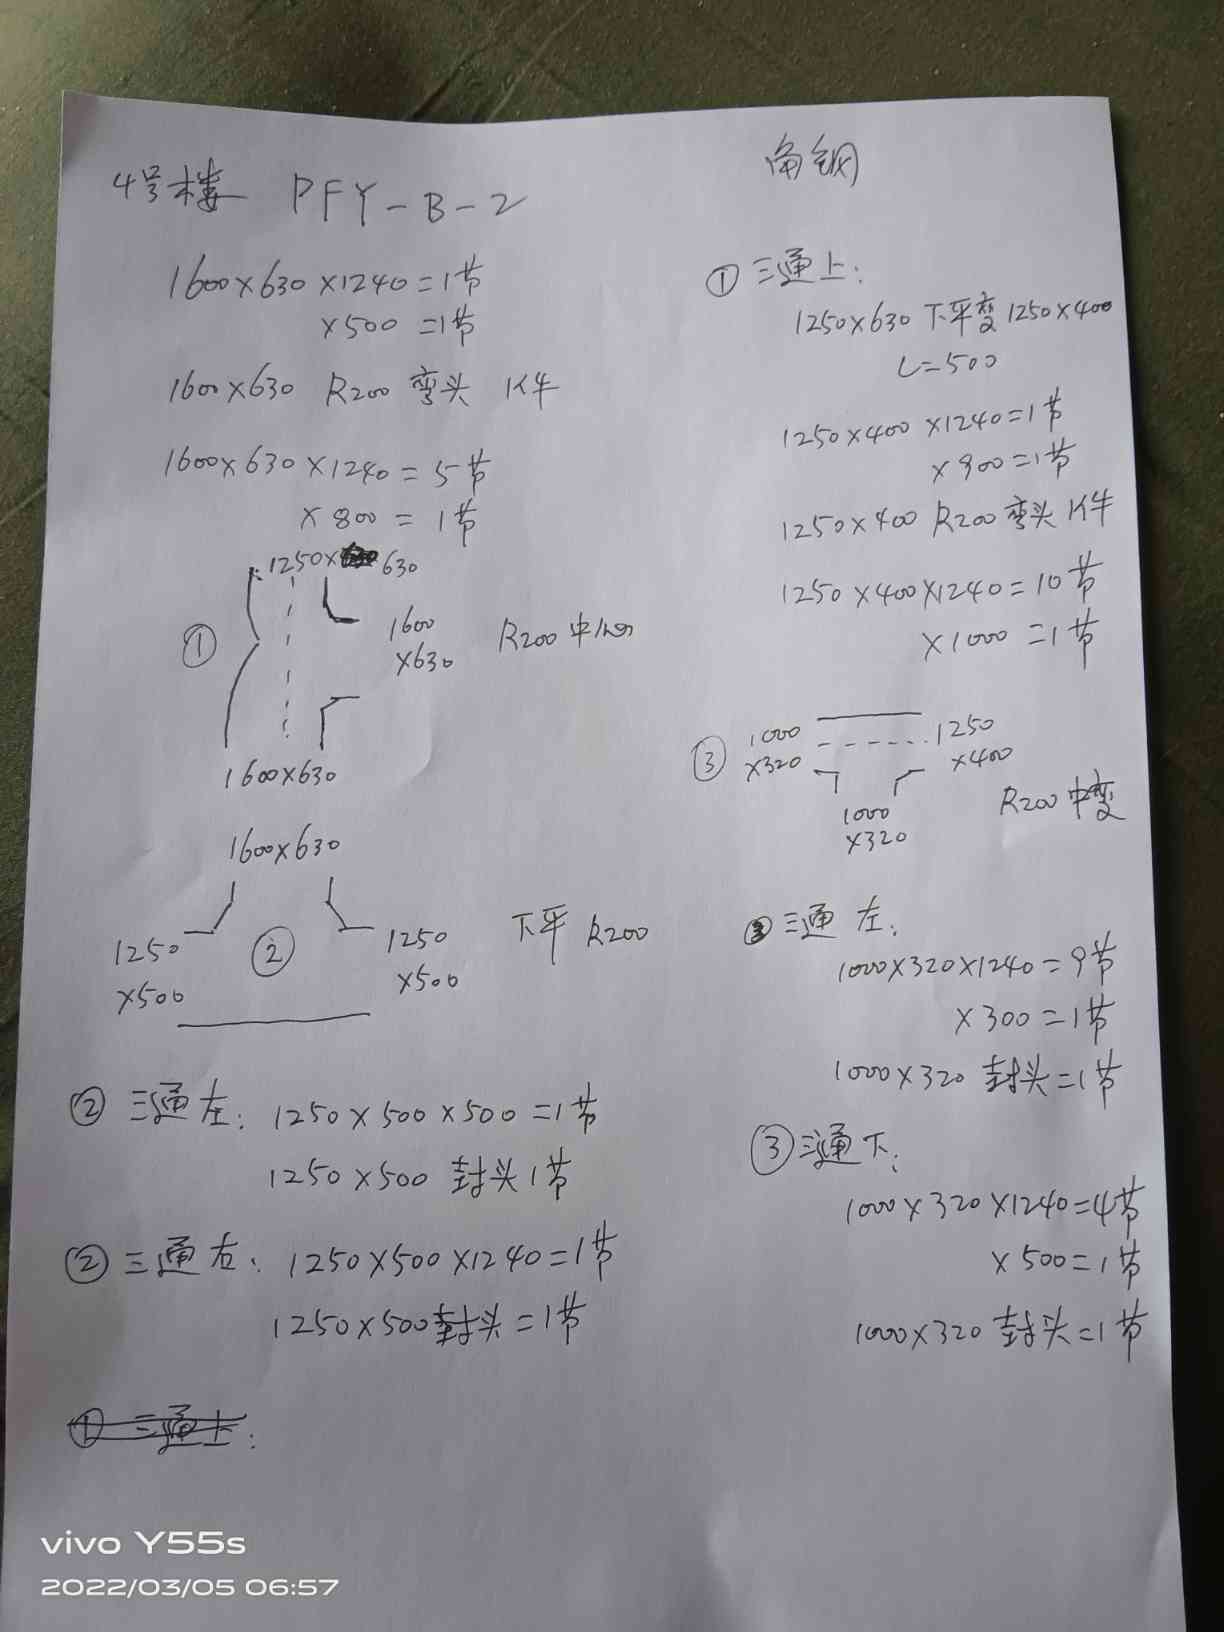 4号楼 PFY-B-2
1600×630×1240=1节
×500=1节
1600×630 R200 弯头 1件
1600×630×1240=5节
×800=1节
1250×630
①
1600
×630
R200
1600×630
1600×630
1250
×500
②
1250
×500
下平 R200
② 三通左: 1250×500×500=1节
1250×500 封头1节
② 三通右: 1250×500×1240=1节
1250×500封头=1节
① 三通上:
角钢
① 三通上:
1250×630下平变1250×400
L=500
1250×400×1240=1节
×900=1节
1250×400 R200弯头1件
1250×400×1240=10节
×1000=1节
③
1000
×320
1250
×400
1000
×320
R200中变
③ 三通左:
1000×320×1240=9节
×300=1节
1000×320 封头=1节
③三通下:
1000×320×1240=4节
×500=1节
1000×320 封头=1节
vivo Y55s
2022/03/05 06:57